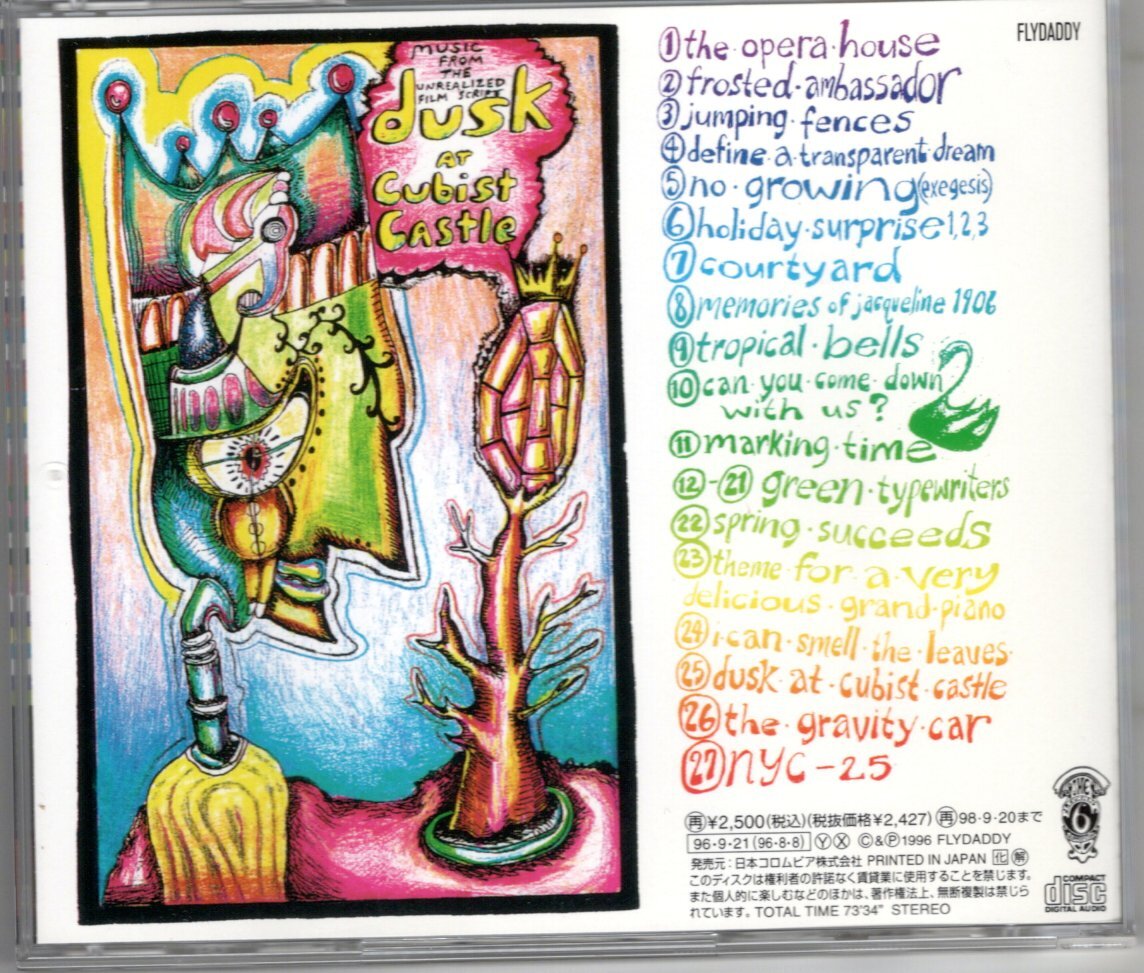 MUSIC
FROM
THE
UNREALIZED
FILM SCRIPT
dusk
AT
Cubist
Castle
FLYDADDY
1 the·opera·house
2 frosted·ambassador
3 jumping·fences
4 define·a·transparent·dream
5 no·growing(exegesis)
6 holiday·surprise 1,2,3
7 courtyard
8 memories of jacqueline 1906
9 tropical·bells
10 can·you·come·down
with us?
11 marking·time
12-21 green·typewriters
22 spring·succeeds
23 theme·for·a·very
delicious·grand·piano
24 i·can·smell·the·leaves·
25 dusk·at·cubist·castle
26 the·gravity·car
27 nyc-25
再¥2,500(税込)(税抜価格¥2,427) 再98·9·20まで
96·9·21(96·8·8) Ⓨ Ⓧ ©&Ⓟ1996 FLYDADDY
発売元:日本コロムビア株式会社 PRINTED IN JAPAN 化 解
このディスクは権利者の許諾なく賃貸業に使用することを禁じます。
また個人的に楽しむなどのほかは、著作権法上、無断複製は禁じら
れています。TOTAL TIME 73'34" STEREO
THE
6
COMPACT
disc
DIGITAL AUDIO